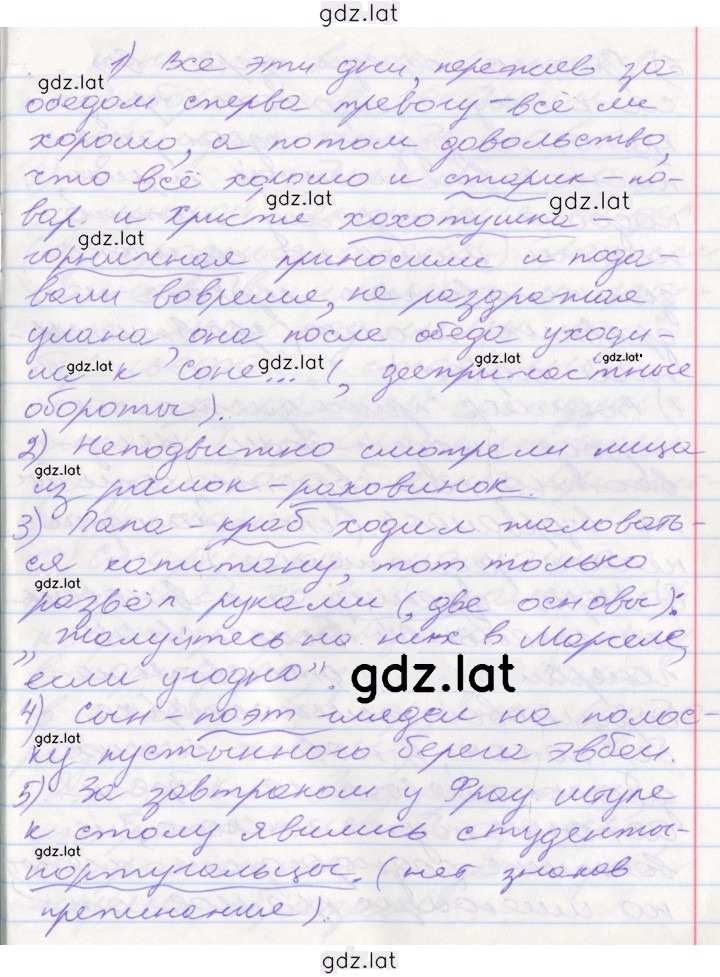 gdz.lat
1) Все эти дни, пережив за
gdz.lat
обедом сперва тревогу – всё ли
хорошо, а потом довольство,
что всё хорошо и старик-по-
gdz.lat
gdz.lat
вар и Христя хохотушка-
gdz.lat
горничная приносили и пода-
вали вовремя, не раздражая
улана, она после обеда уходи-
gdz.lat
gdz.lat
gdz.lat
gdz.lat
ла к Соне... (, деепричастные
обороты).
2) Неподвижно смотрели лица
gdz.lat
из рамок-раковинок.
3) Папа-краб ходил жаловать-
ся капитану, тот только
gdz.lat
развёл руками (, две основы):
„Жалуйтесь на них в Марселе,
если угодно".
gdz.lat
4) Сын-поэт глядел на полос-
gdz.lat
ку пустынного берега Эвбеи.
5) За завтраком у Фрау Штуле
к столу явились студенты-
gdz.lat
португальцы. (нет знаков
препинания).
gdz.lat